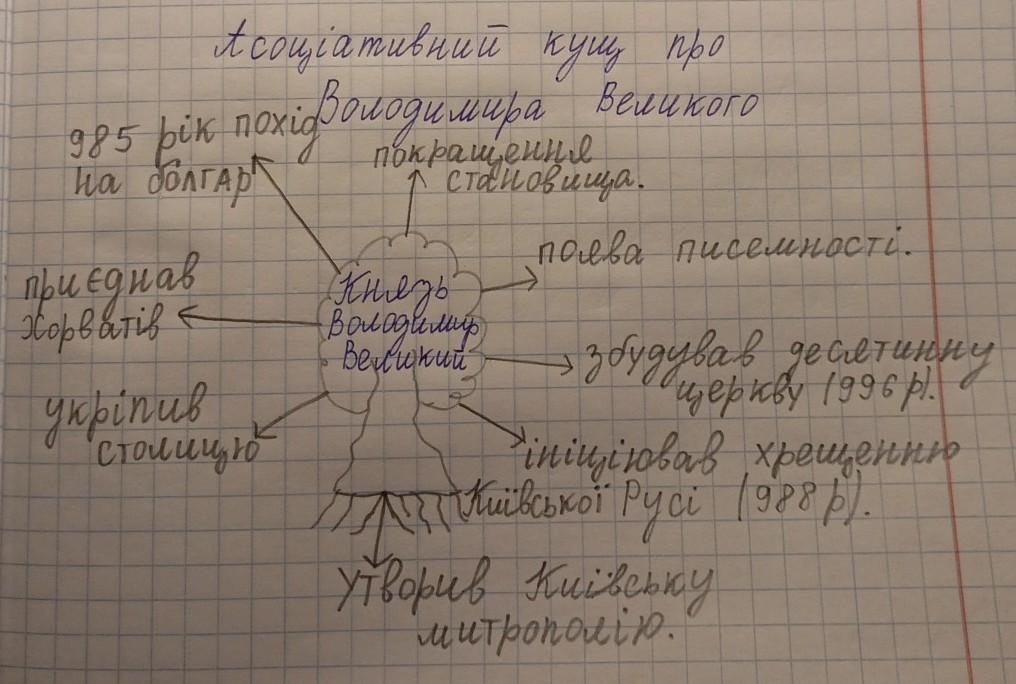 Асоціативний кущ про
Володимира Великого
985 рік похід
на болгар
покращення
становища.
поява писемності.
приєднав
Хорватів
Князь
Володимир
Великий
збудував десятинну
церкву (996 р).
укріпив
столицю
ініціював хрещенню
Київської Русі (988 р).
Утворив Київську
митрополію.